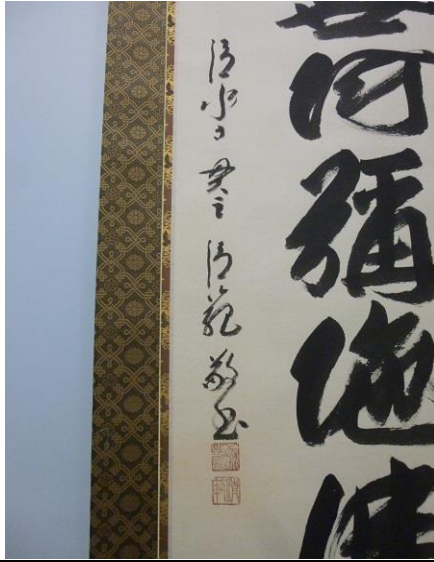 無阿彌陀佛
清水寺 貫主 清範 敬書